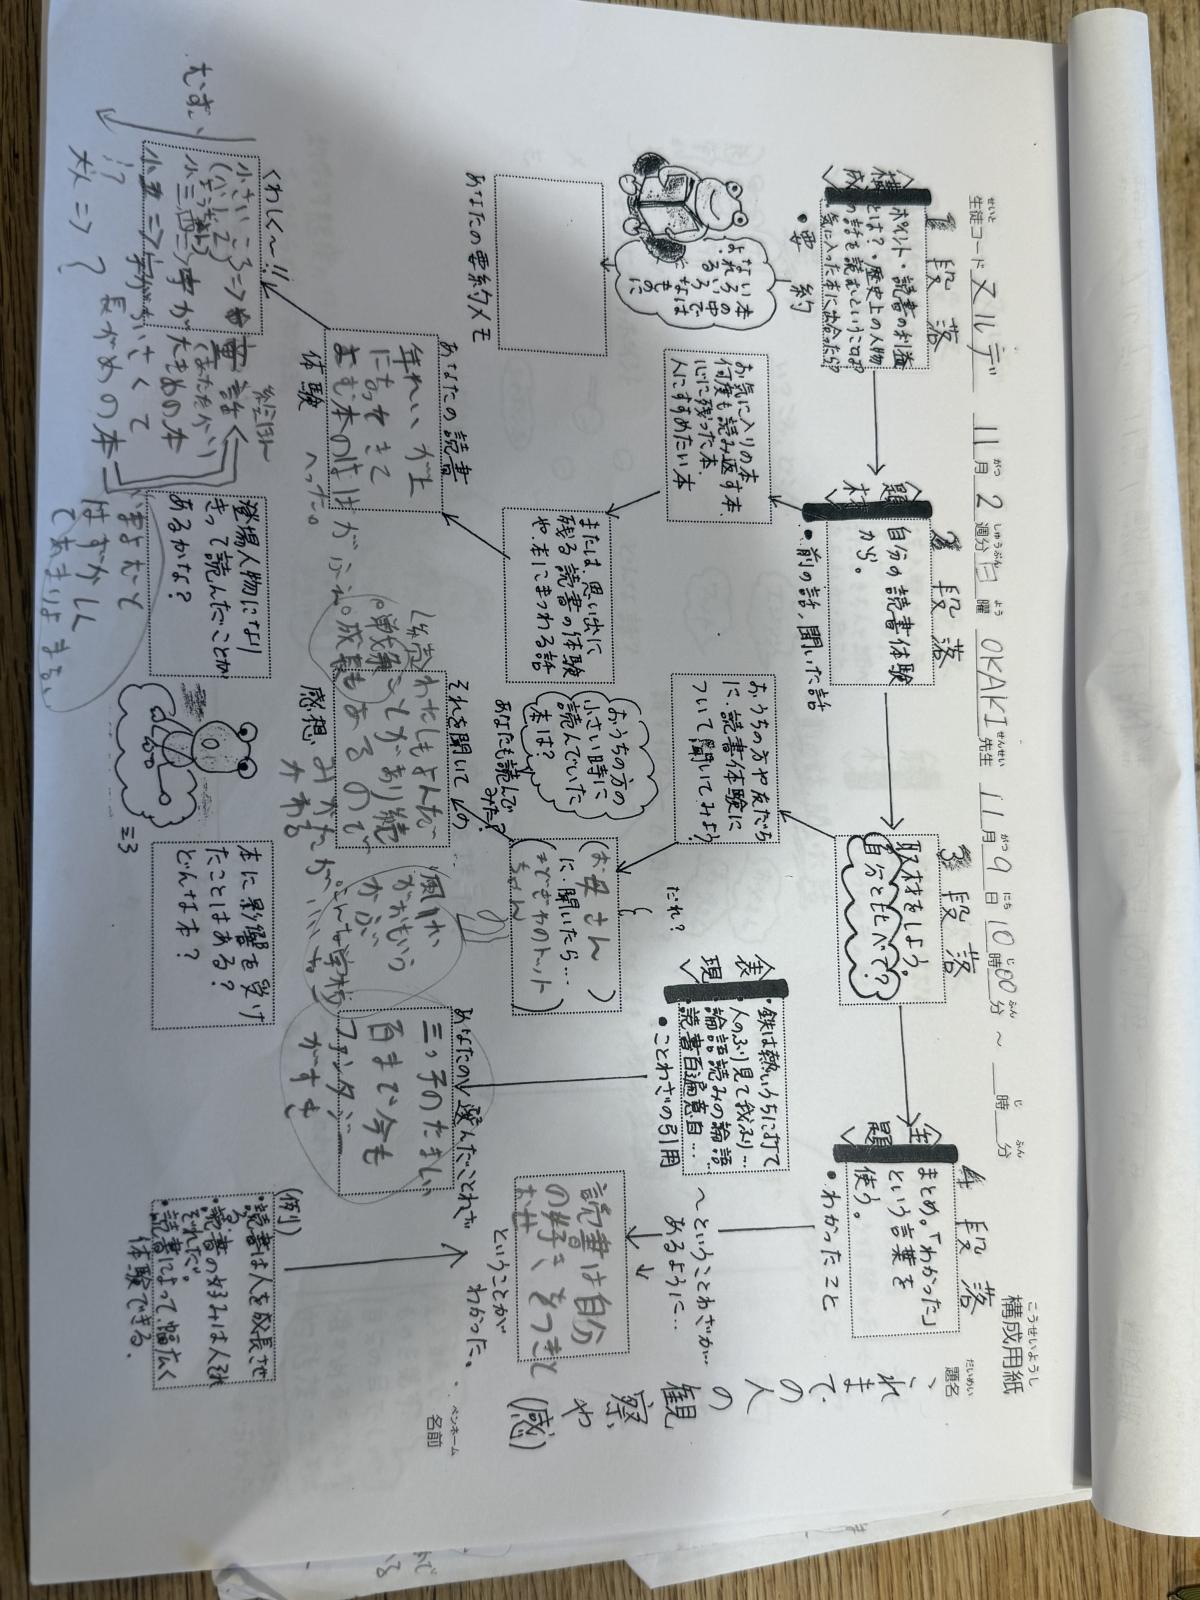 構成用紙
こうせいようし
題名
だいめい
ペンネーム
名前
生徒コード
せいと
ヌルデ
11月2週分日曜
がつ
しゅうぶん
よう
OKAKI先生
せんせい
11月9日10時00分〜
がつ
にち
じ
ふん
時
分
じ
ふん
1段落
構成
ポイント・読書の利益
とは?・歴史上の人物
の話を読むということは?
気に入った本に出会ったら?
・要約
いろいろな本の中
あなたの要約メモ
2段落
題材
自分の読書体験
から。
・前の話、聞いた話
お気に入りの本
何度も読み返す本、
心に残った本、
人にすすめたい本
または、思い出に
残る読書の体験
や、本にまつわる話
あなたの読書
体験
年れいが上
になってきて
よむ本のはばが
へった。
くわしく〜!!
むずい
小さいころ⇒
絵ほん
字が大きめの本
小さくて
長がめの本
大人⇒?
登場人物になり
きって読んだことが
あるかな?
はずかしく
てあまりよまない
3段落
取材をしよう。
自分と比べて?
おうちの方や友だち
に、読書体験に
ついて聞いてみよう
おうちの方の
小さい時に
読んでいた
本は?
あなたも読んで
みた?
だれ?
(お母さん)
に、聞いたら…
(まどぎわのトット
ちゃん)
それを聞いての
感想
わたしもよんで、
成長もあるので
みかたが
かわる
風けい
がおもいう
かぶ
本に影響を受け
たことはある?
どんな本?
表現
・鉄は熱いうちに打て
・人のふり見て我ふり…
・論語読みの論語…
・読書百遍意自…
・ことわざの引用
〜ということわざが
あるように…
あなたの選んだことわざ
三っ子のたましい
百まで今も
ファンタジー
がすき
4段落
主題
まとめ。「わかった」
という言葉を
使う。
・わかったこと
読書は自分
の好きをつきと
ということが
わかった。
(例)
・読書は人を成長させ
る。
・読書の好みは人それ
ぞれだ。
・読書によって、幅広く
体験できる。
これまで、
の人
の
観
察
や
(感)